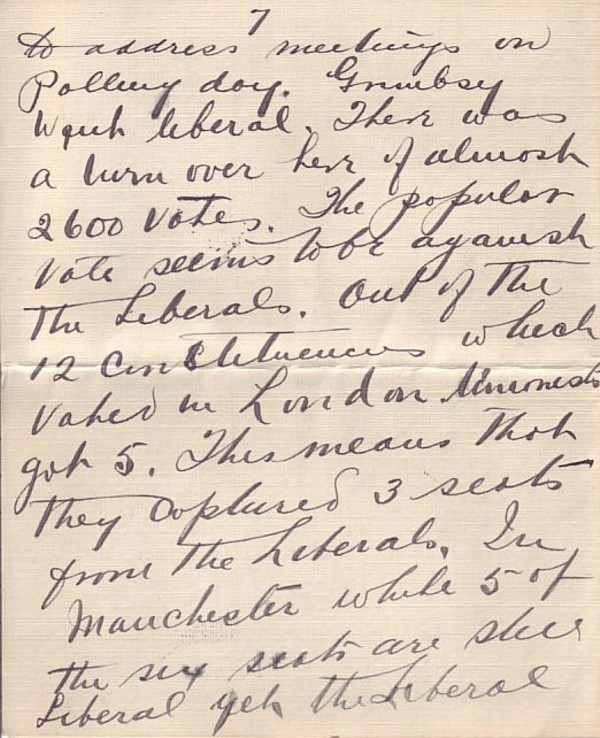 7
to address meetings on
Polling day. Grimbsy
Went liberal. There was
a turn over here of almost
2600 votes. The popular
vote seems to be against
the Liberals. Out of the
12 Constituencies which
voted in London Unionists
got 5. This means that
they captured 3 seats
from the Liberals. In
Manchester while 5 of
the six seats are still
Liberal yet the Liberal